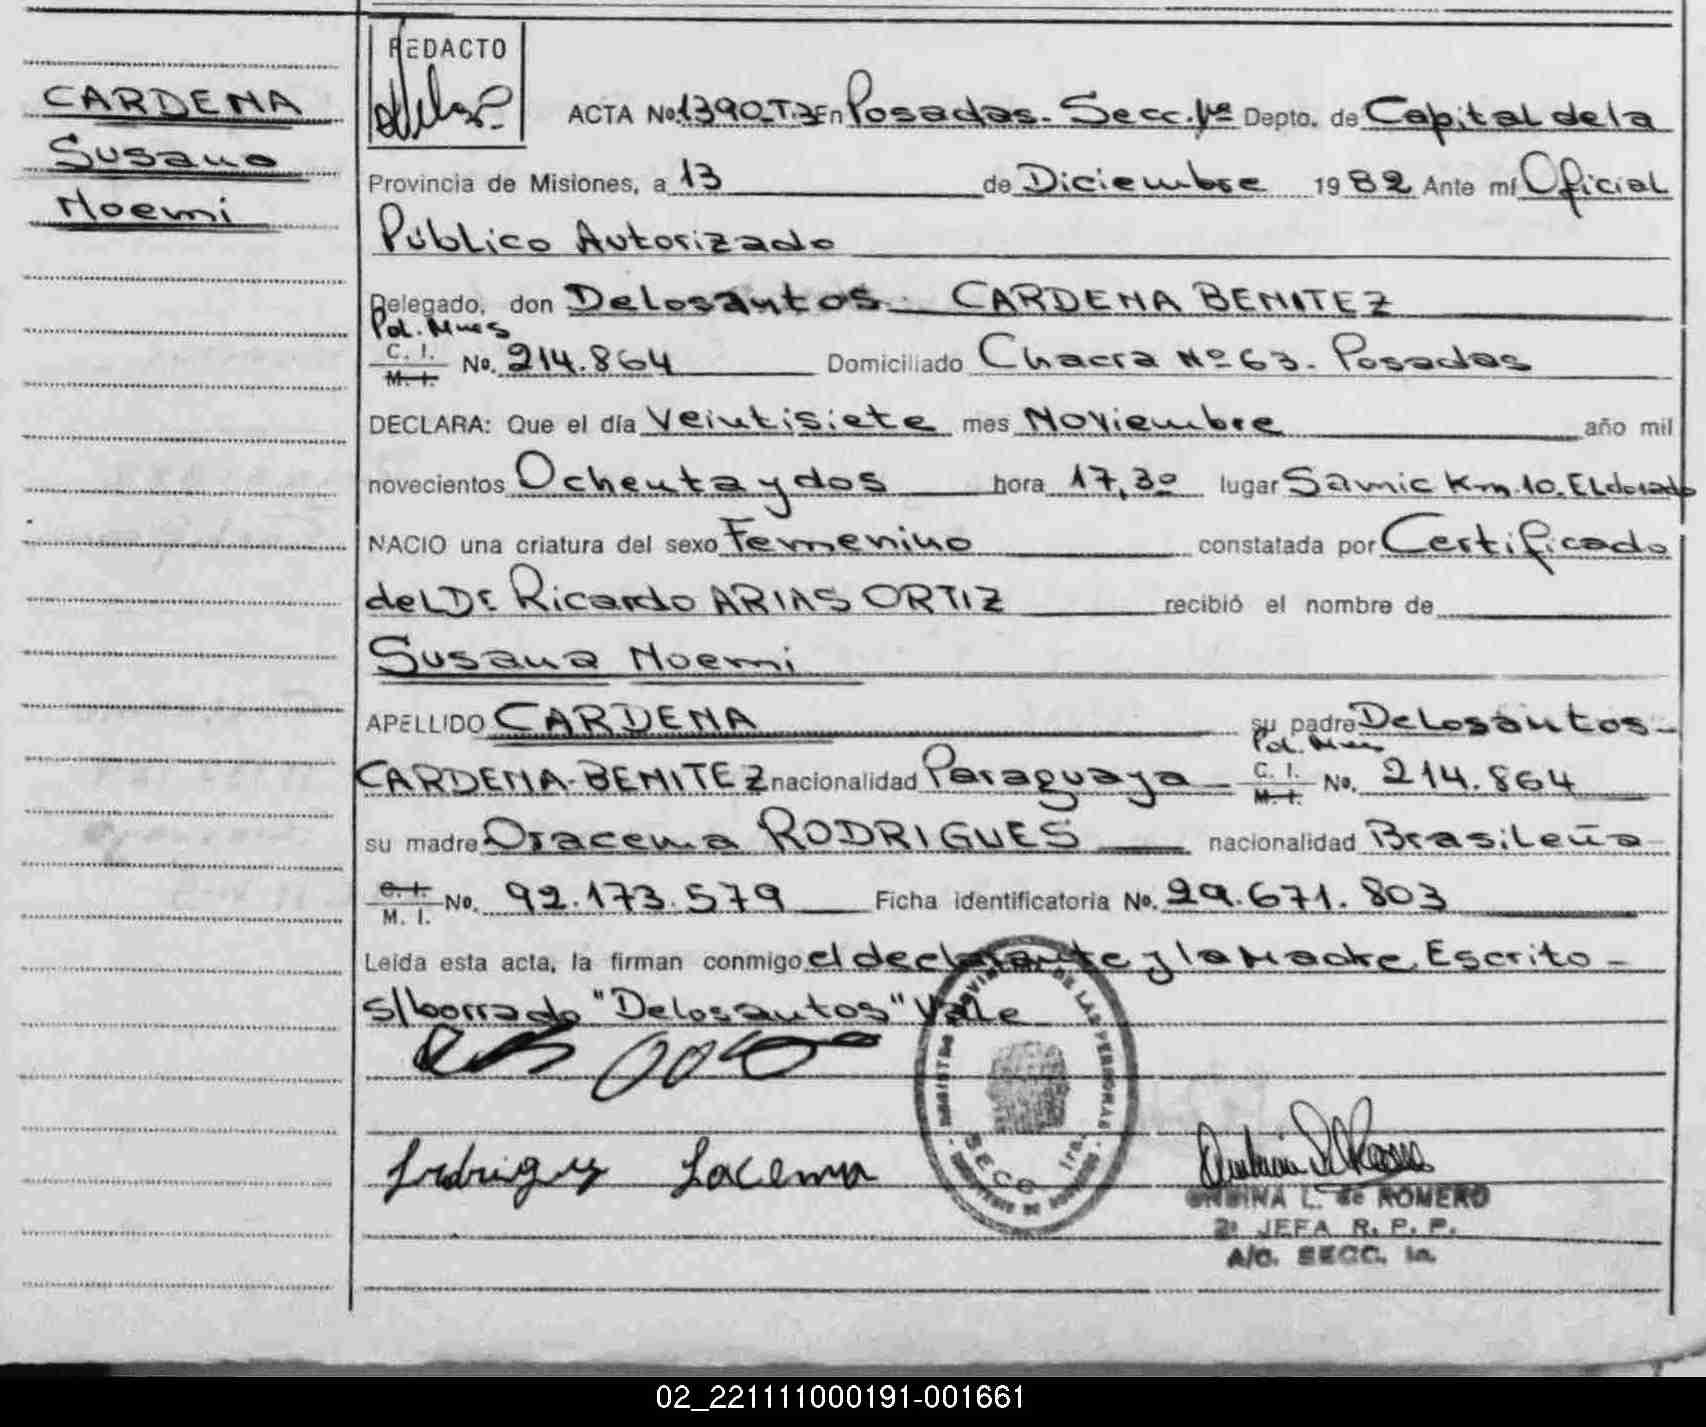 CARDENA
Susana
Noemi
REDACTO
ACTA No. 1390.T.3 En Posadas. Secc. 1ra Depto. de Capital de la
Provincia de Misiones, a 13 de Diciembre 1982 Ante mí Oficial
Público Autorizado
Delegado, don Delosantos CARDENA BENITEZ
Pol. Mnes
C. I.
M. I. No. 214.864 Domiciliado Chacra Nº 63. Posadas
DECLARA: Que el día Veintisiete mes Noviembre año mil
novecientos Ochenta y dos hora 17,30 lugar Samic Km. 10. Eldorado
NACIO una criatura del sexo Femenino constatada por Certificado
del Dr Ricardo ARIAS ORTIZ recibió el nombre de
Susana Noemi
APELLIDO CARDENA su padre Delosantos-
Pol. Mnes
CARDENA-BENITEZ nacionalidad Paraguaya C. I. M. I. No. 214.864
su madre Oracema RODRIGUES nacionalidad Brasileña
C. I.
M. I. No. 92.173.579 Ficha identificatoria No. 29.671.803
Leída esta acta, la firman conmigo el declarante y la Madre. Escrito -
s/borrado "Delosantos" Vale
PROVINCIAL DE LAS PERSONAS
SECC. 1ra.
L. de ROMERO
2ª JEFA R. P. P.
A/C. SECC. 1a.
02_221111000191-001661